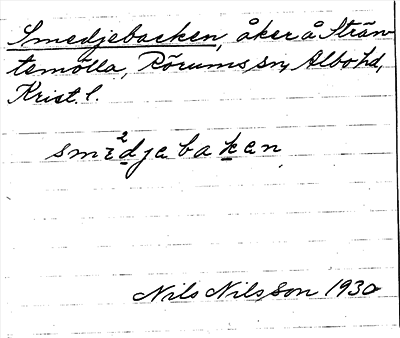 Smedjebacken, åker å Strän-
temölla, Rörums sn, Albo hd,
Krist. l.
smedjebaken
Nils Nilsson 1930